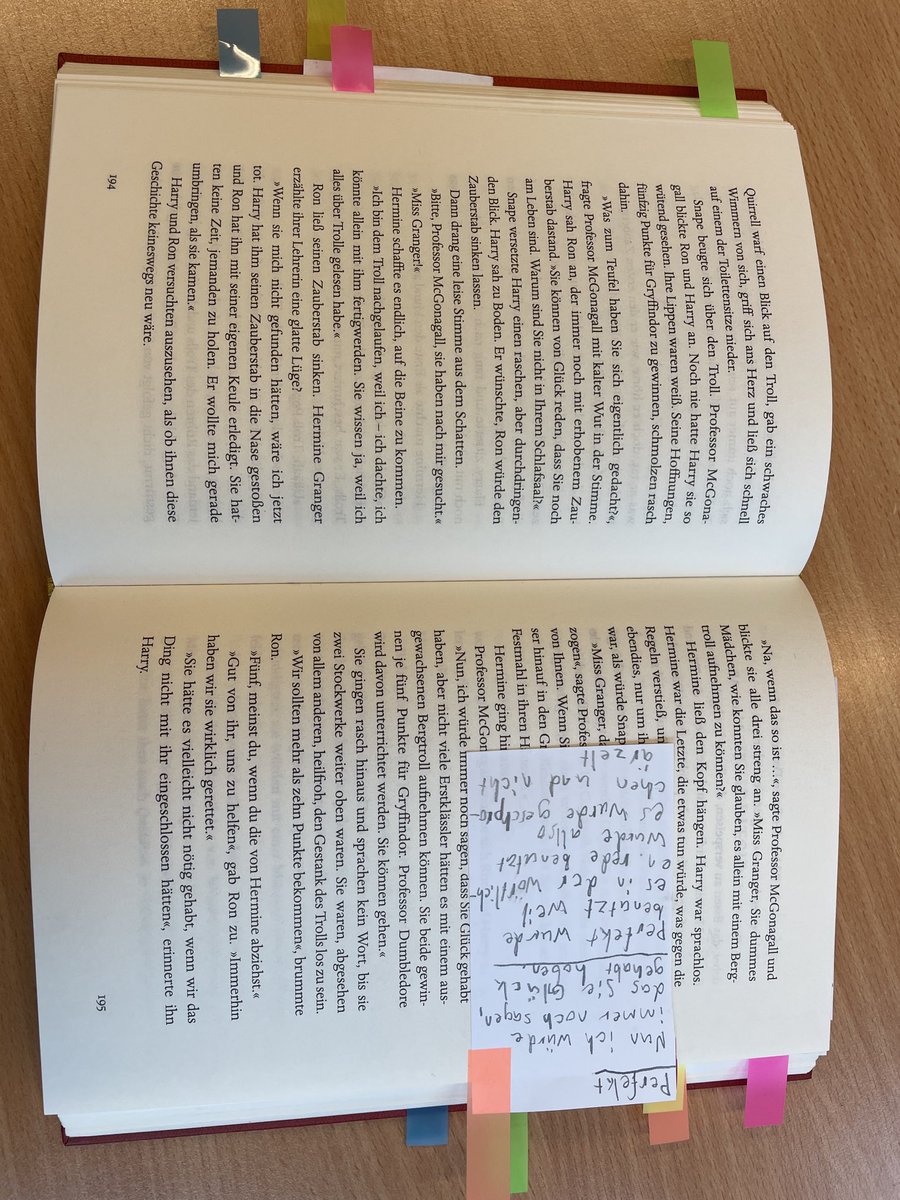 Quirrell warf einen Blick auf den Troll, gab ein schwaches
Wimmern von sich, griff sich ans Herz und ließ sich schnell
auf einem der Toilettensitze nieder.
Snape beugte sich über den Troll. Professor McGona-
gall blickte Ron und Harry an. Noch nie hatte Harry sie so
wütend gesehen. Ihre Lippen waren weiß. Seine Hoffnungen,
fünfzig Punkte für Gryffindor zu gewinnen, schmolzen rasch
dahin.
»Was zum Teufel haben Sie sich eigentlich gedacht?«,
fragte Professor McGonagall mit kalter Wut in der Stimme.
Harry sah Ron an, der immer noch mit erhobenem Zau-
berstab dastand. »Sie können von Glück reden, dass Sie noch
am Leben sind. Warum sind Sie nicht in Ihrem Schlafsaal?«
Snape versetzte Harry einen raschen, aber durchdringen-
den Blick. Harry sah zu Boden. Er wünschte, Ron würde den
Zauberstab sinken lassen.
Dann drang eine leise Stimme aus dem Schatten.
»Bitte, Professor McGonagall, sie haben nach mir gesucht.«
»Miss Granger!«
Hermine schaffte es endlich, auf die Beine zu kommen.
»Ich bin dem Troll nachgelaufen, weil ich – ich dachte, ich
könnte allein mit ihm fertigwerden. Sie wissen ja, weil ich
alles über Trolle gelesen habe.«
Ron ließ seinen Zauberstab sinken. Hermine Granger
erzählte ihrer Lehrerin eine glatte Lüge?
»Wenn sie mich nicht gefunden hätten, wäre ich jetzt
tot. Harry hat ihm seinen Zauberstab in die Nase gestoßen
und Ron hat ihn mit seiner eigenen Keule erledigt. Sie hat-
ten keine Zeit, jemanden zu holen. Er wollte mich gerade
umbringen, als sie kamen.«
Harry und Ron versuchten auszusehen, als ob ihnen diese
Geschichte keineswegs neu wäre.
194
»Na, wenn das so ist …«, sagte Professor McGonagall und
blickte sie alle drei streng an. »Miss Granger, Sie dummes
Mädchen, wie konnten Sie glauben, es allein mit einem Berg-
troll aufnehmen zu können?«
Hermine ließ den Kopf hängen. Harry war sprachlos.
Hermine war die Letzte, die etwas tun würde, was gegen die
Regeln verstieß,
ebendies, nur um
war, als würde
»Miss Granger,
zogen«, sagte
von Ihnen. Wenn
ser hinauf in den
Festmahl in ihren
Hermine ging
Professor
»Nun, ich würde immer noch sagen, dass Sie Glück gehabt
haben, aber nicht viele Erstklässler hätten es mit einem aus-
gewachsenen Bergtroll aufnehmen können. Sie beide gewin-
nen je fünf Punkte für Gryffindor. Professor Dumbledore
wird davon unterrichtet werden. Sie können gehen.«
Sie gingen rasch hinaus und sprachen kein Wort, bis sie
zwei Stockwerke weiter oben waren. Sie waren, abgesehen
von allem anderen, heilfroh, den Gestank des Trolls los zu sein.
»Wir sollten mehr als zehn Punkte bekommen«, brummte
Ron.
»Fünf, meinst du, wenn du die von Hermine abziehst.«
»Gut von ihr, uns zu helfen«, gab Ron zu. »Immerhin
haben wir sie wirklich gerettet.«
»Sie hätte es vielleicht nicht nötig gehabt, wenn wir das
Ding nicht mit ihr eingeschlossen hätten«, erinnerte ihn
Harry.
195
Perfekt
Nun ich würde
immer noch sagen,
das Sie Glück
gehabt haben.
Perfekt wurde
benutzt weil
es in der wörtlich-
en rede benutzt
wurde allso
es wurde geschpro-
chen und nicht
ärzelt